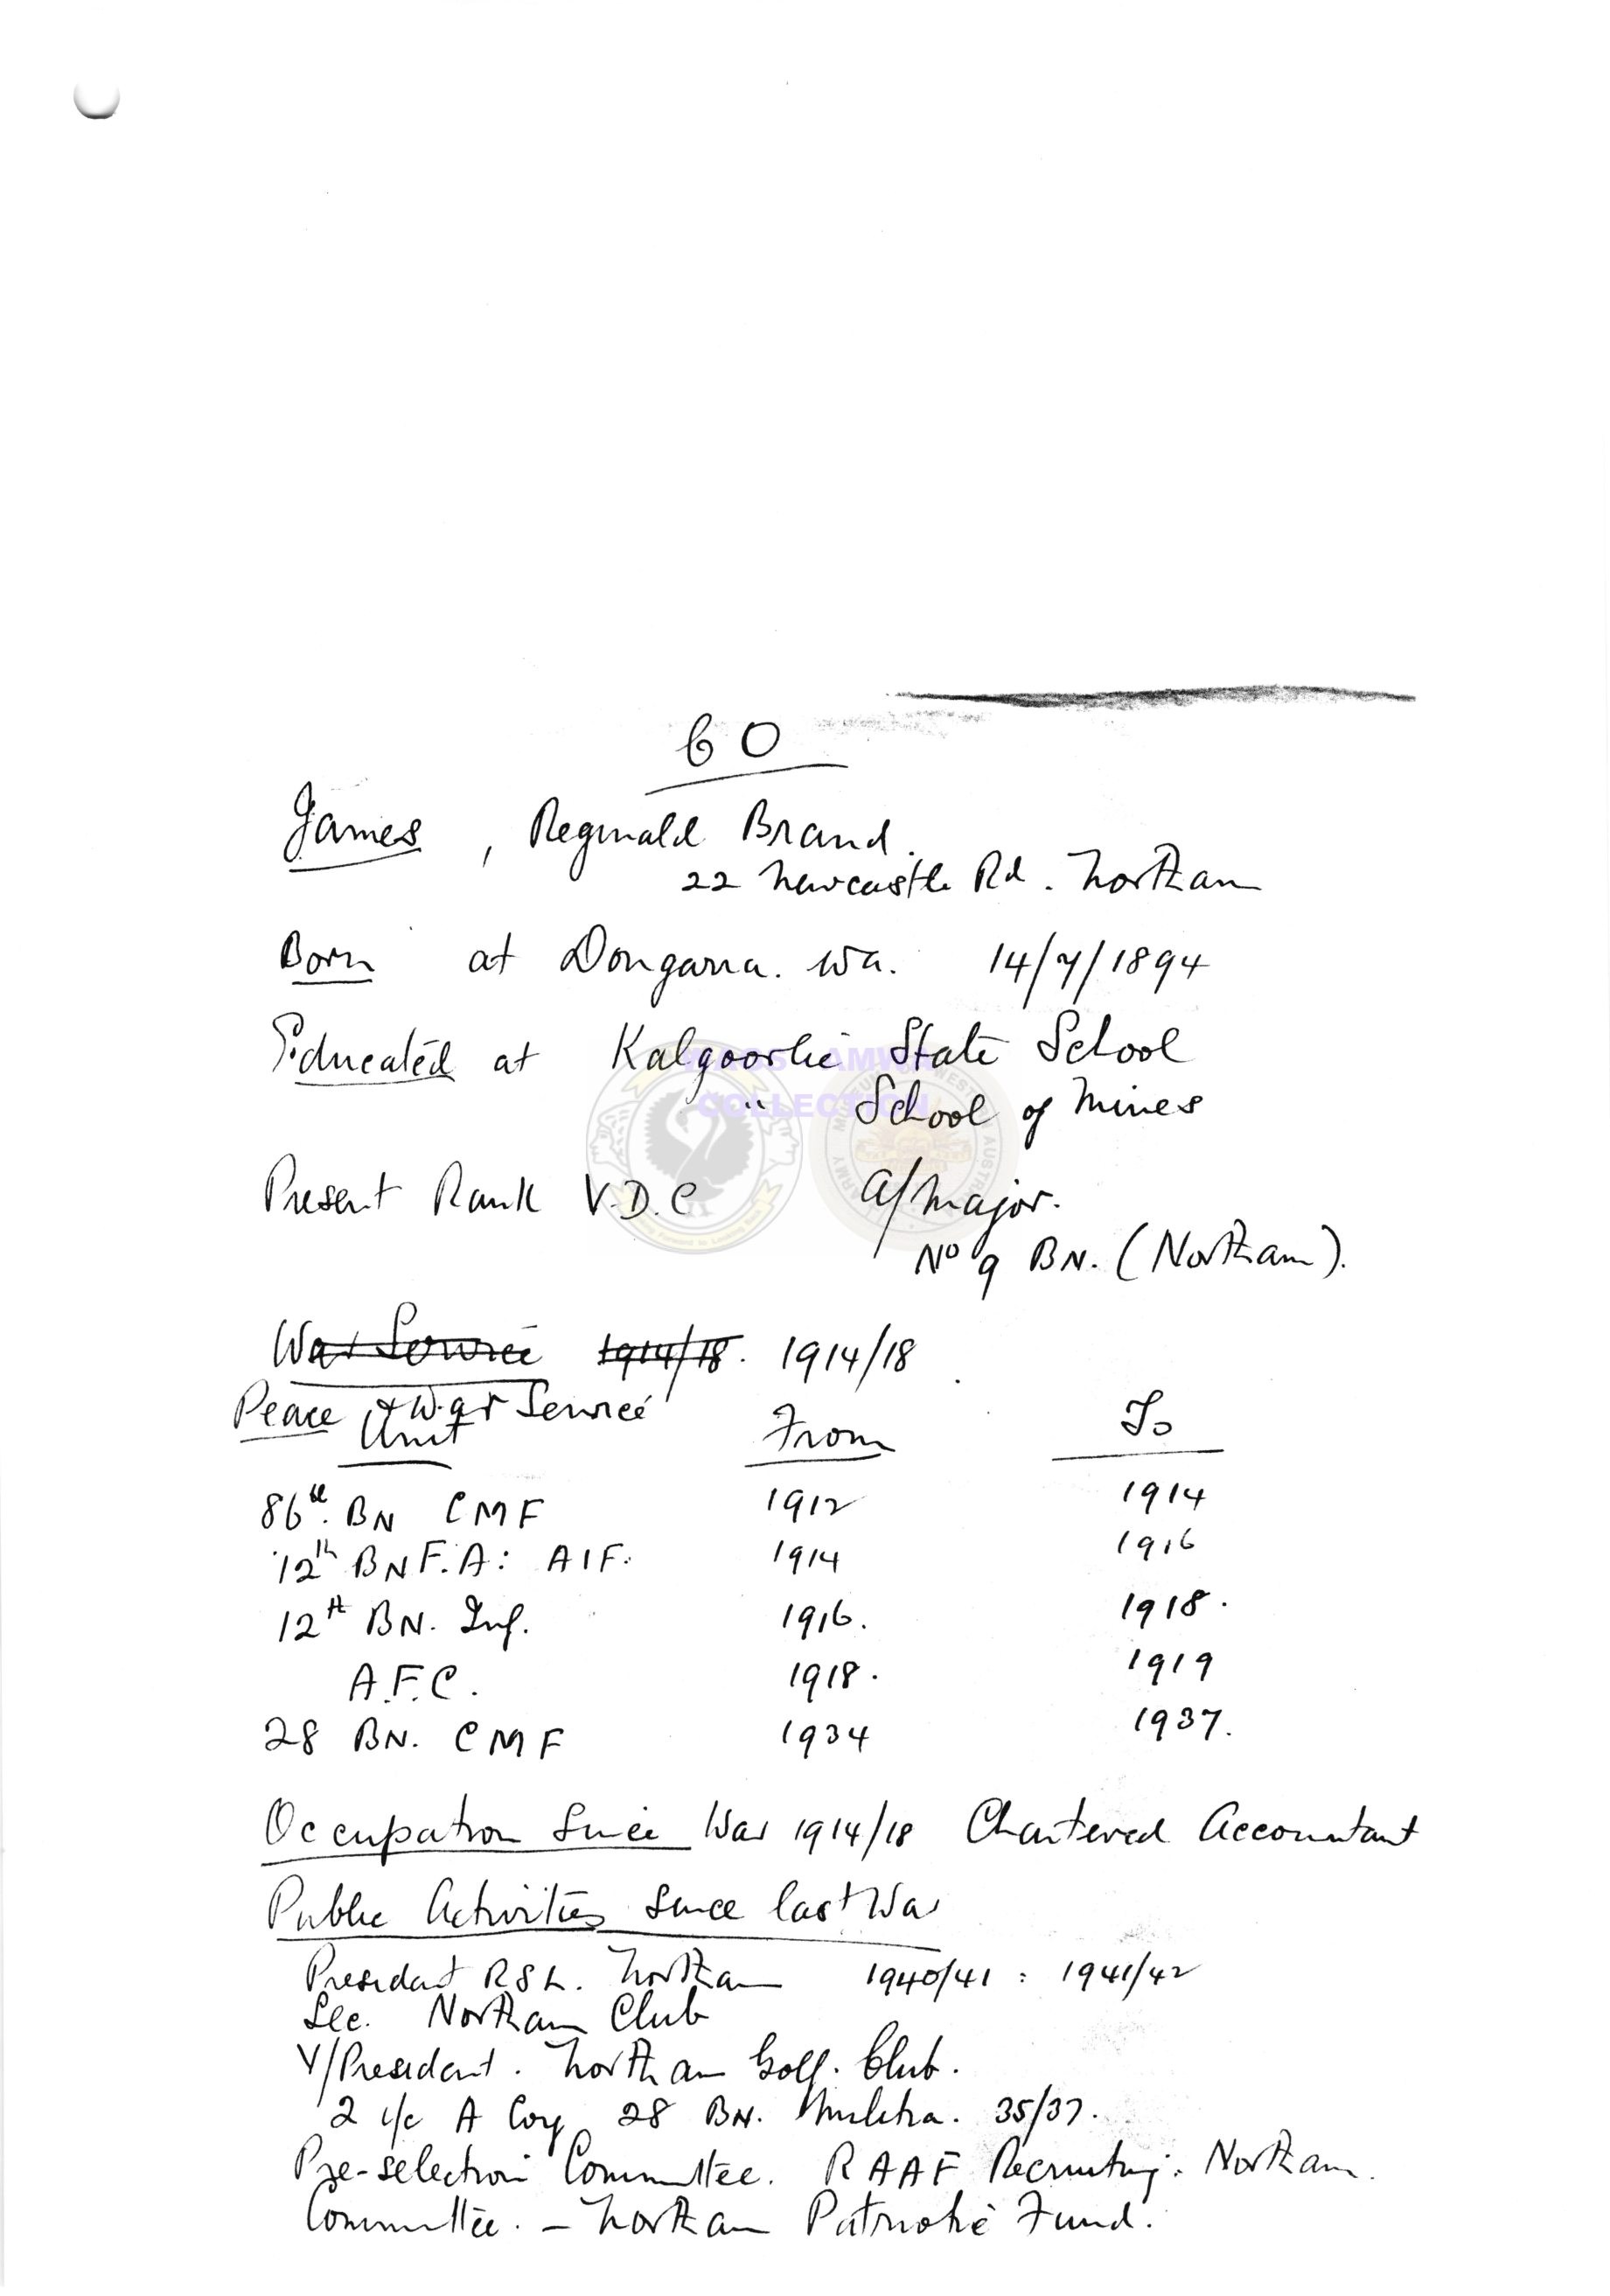 60
James, Reginald Brand.
22 Newcastle Rd. Northam
Born at Dongarra. Wa. 14/7/1894
Educated at Kalgoorlie State School
" School of Mines
WAGS AMWA
COLLECTION
Present Rank V.D.C a/Major.
No 9 BN. (Northam).
War Service 1914/18. 1914/18
Peace & War Service
Unit From To
86th. BN CMF 1912 1914
12th BN F.A: AIF. 1914 1916
12th BN. Inf. 1916. 1918.
A.F.C. 1918. 1919
28 BN. CMF 1934 1937.
Occupation Since War 1914/18 Chartered Accountant
Public Activities since last War
President RSL. Northam 1940/41 : 1941/42
Sec. Northam Club
V/President. Northam Golf. Club.
2 i/c A Coy 28 BN. Militia. 35/37.
Pre-selection Committee. RAAF Recruiting. Northam.
Committee. - Northam Patriotic Fund.